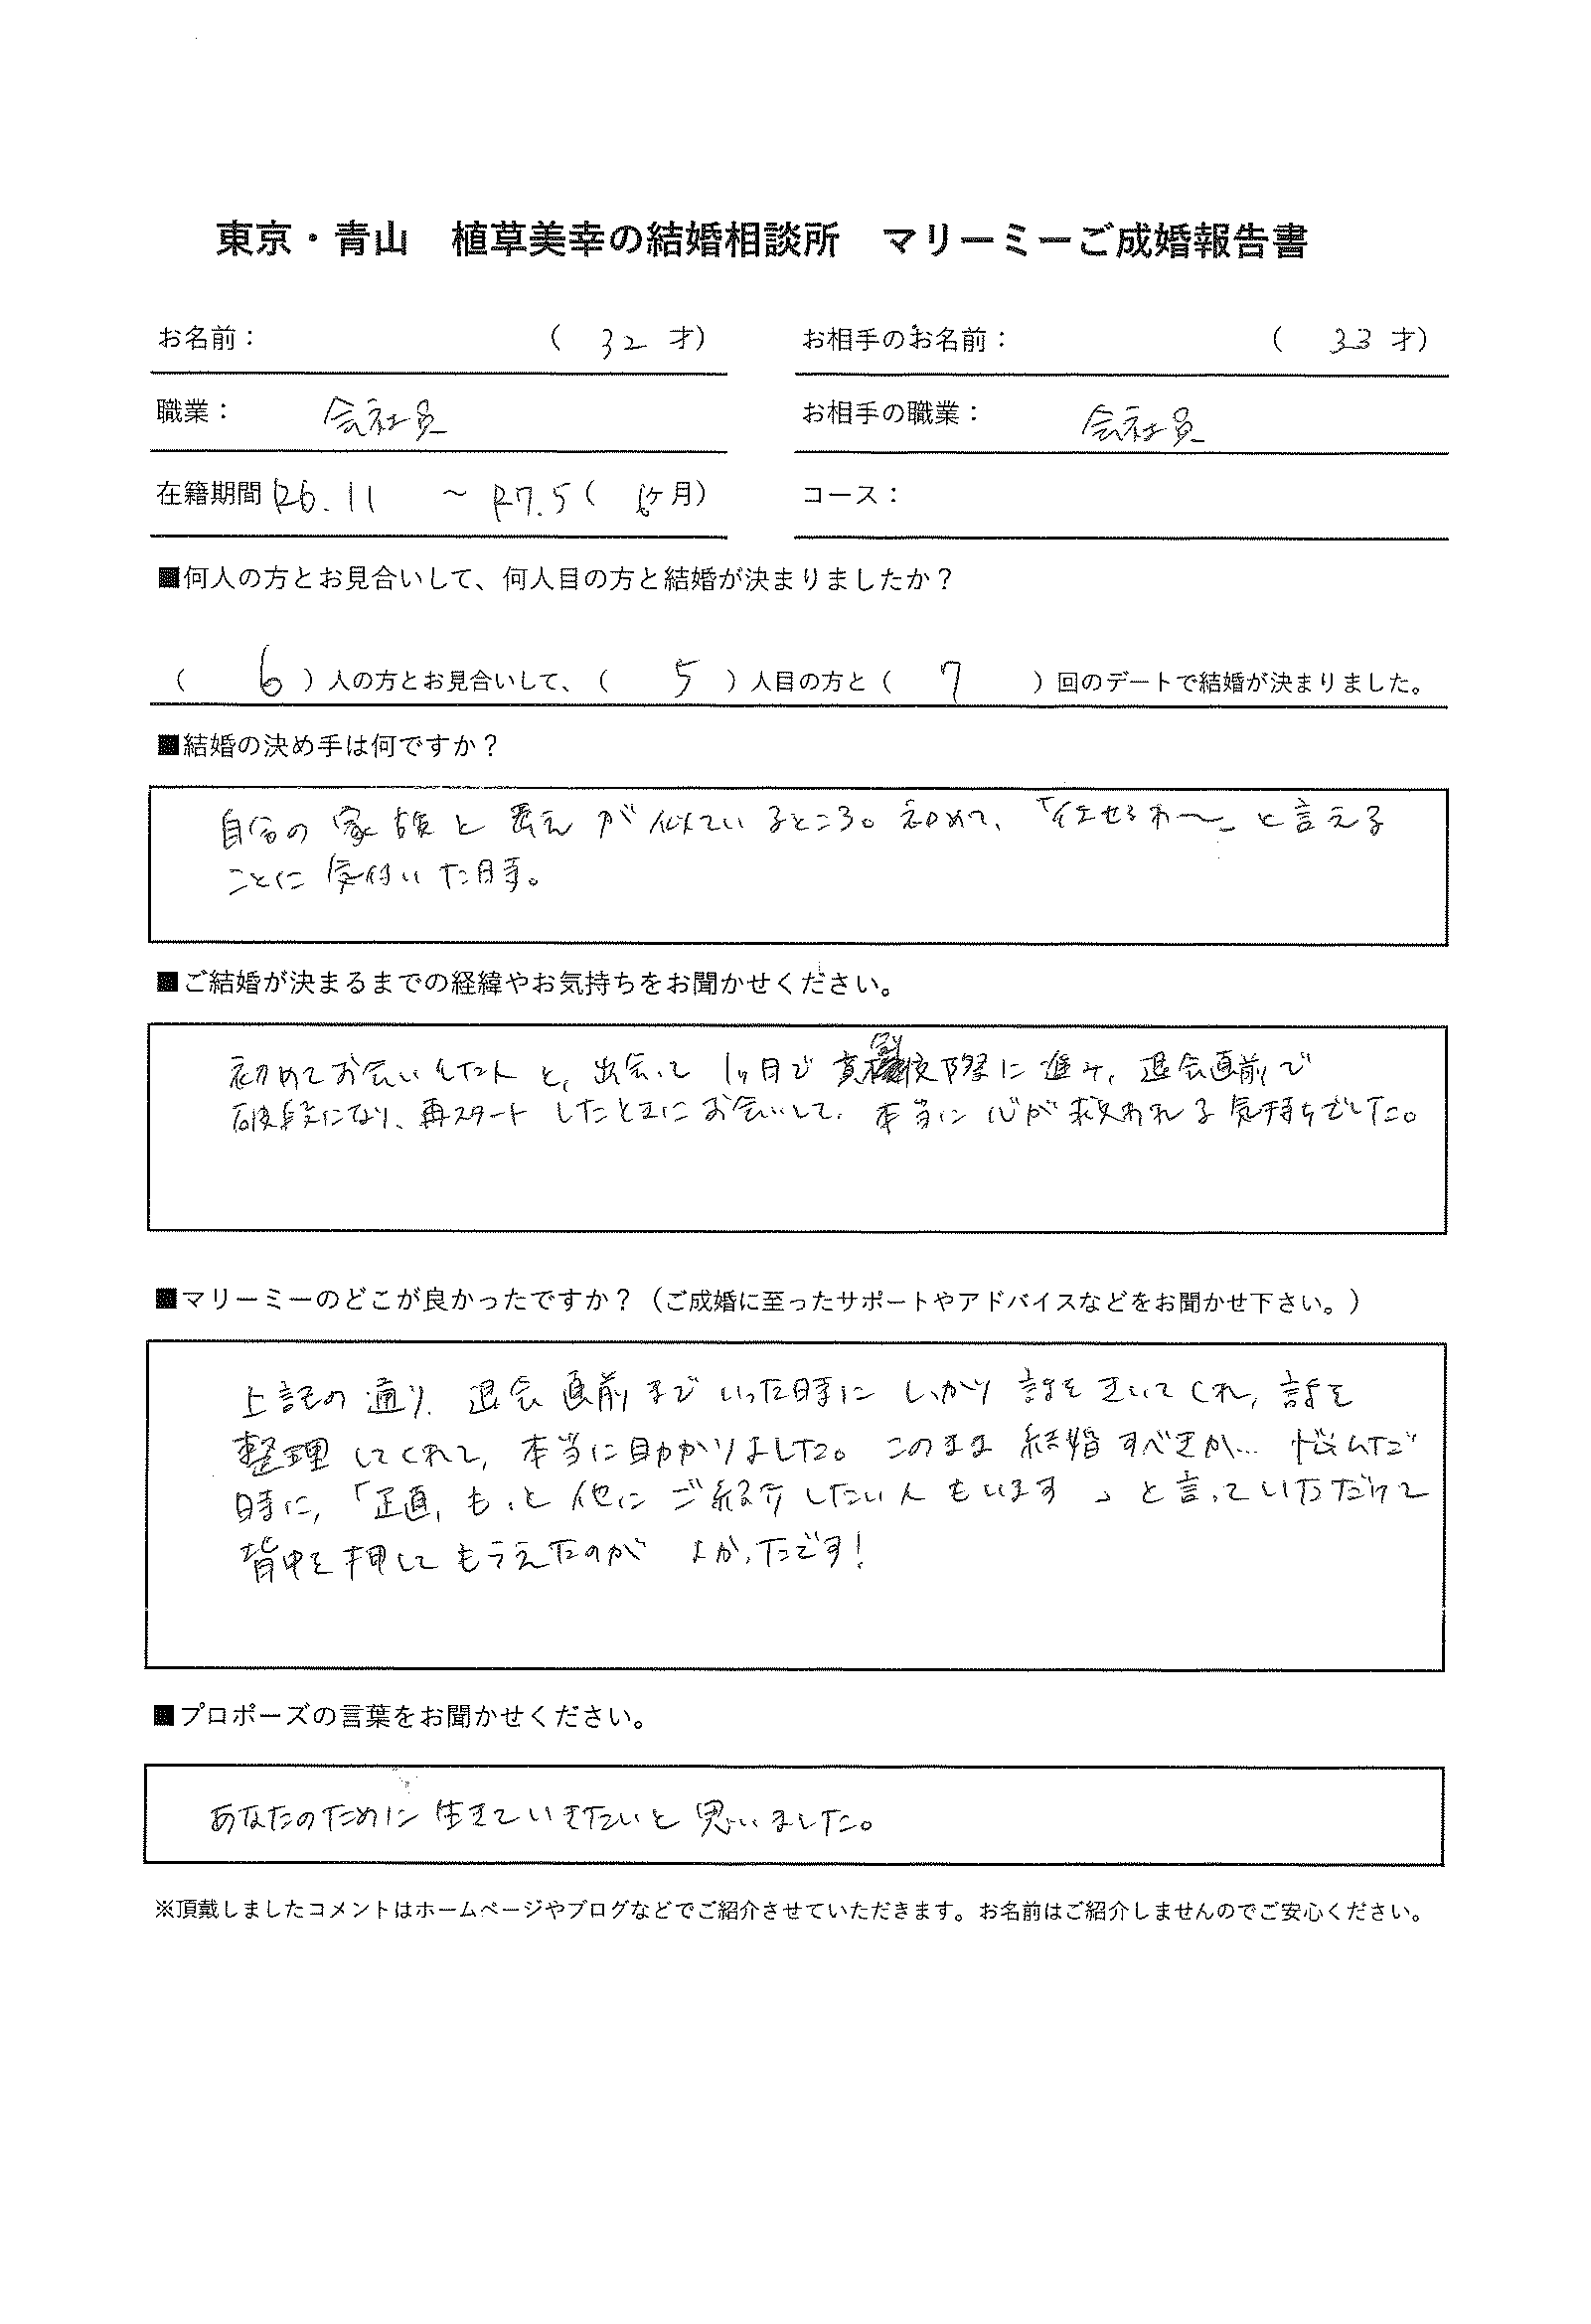 東京・青山　植草美幸の結婚相談所　マリーミーご成婚報告書
お名前：　（ 32 才）　お相手のお名前：　（ 33 才）
職業：　会社員　お相手の職業：　会社員
在籍期間 R6.11 ～ R7.5（ 6ヶ月）　コース：
■何人の方とお見合いして、何人目の方と結婚が決まりましたか？
（ 6 ）人の方とお見合いして、（ 5 ）人目の方と（ 7 ）回のデートで結婚が決まりました。
■結婚の決め手は何ですか？
自分の家族と が似ているところ。初めて、「任せるわ〜」と言える
ことに気付いた時。
■ご結婚が決まるまでの経緯やお気持ちをお聞かせください。
初めてお会いした人と、出会って1ヶ月で真剣交際に進み、退会直前で
破談になり、再スタートしたときにお会いして、本当に心が救われる気持ちでした。
■マリーミーのどこが良かったですか？（ご成婚に至ったサポートやアドバイスなどをお聞かせ下さい。）
上記の通り、退会直前までいった時にしっかり話をきいてくれ、話を
整理してくれて、本当に助かりました。このまま結婚すべきか…悩んだ
時に、「正直、もっと他にご紹介したい人もいます」と言っていただけて
背中を押してもらえたのがよかったです！
■プロポーズの言葉をお聞かせください。
あなたのために生きていきたいと思いました。
※頂戴しましたコメントはホームページやブログなどでご紹介させていただきます。お名前はご紹介しませんのでご安心ください。